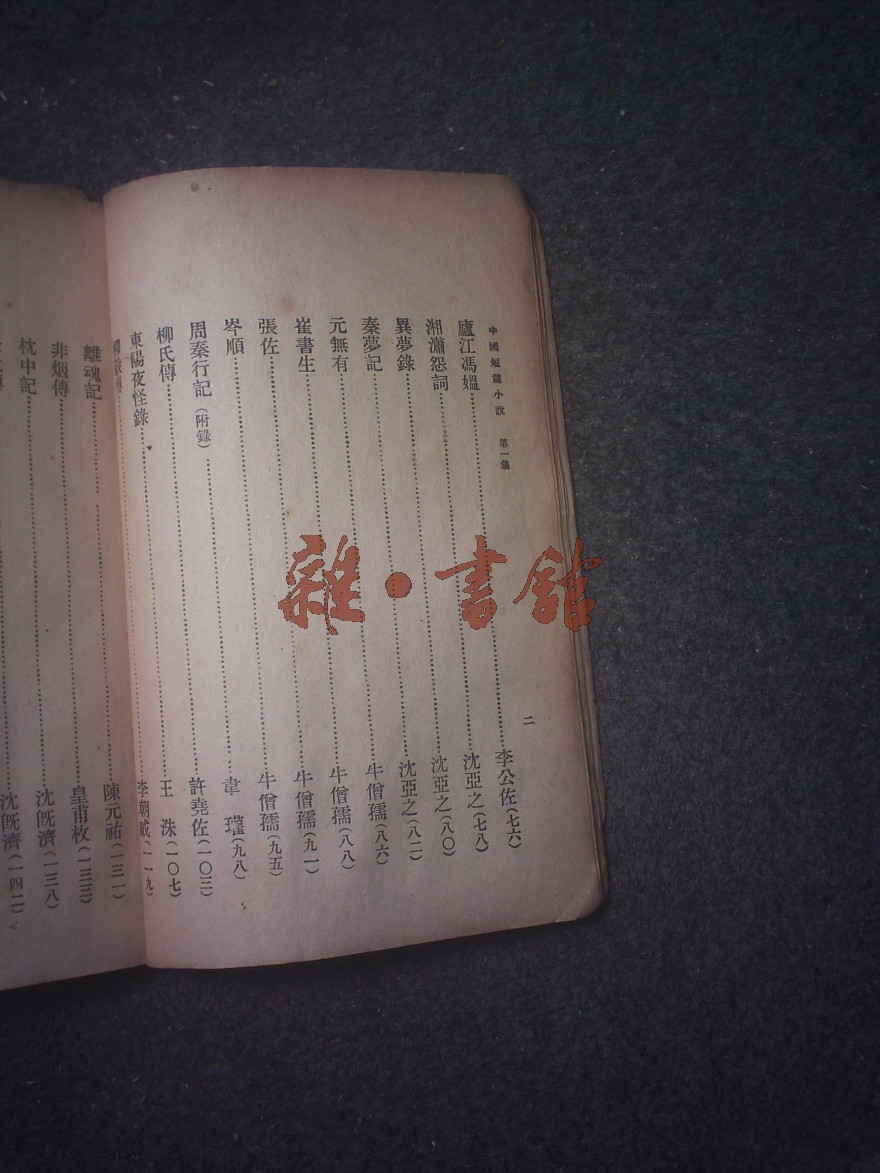 中國短篇小說 第一集
二
廬江馮媼……李公佐(七六)
湘瀟怨詞……沈亞之(七八)
異夢錄……沈亞之(八〇)
秦夢記……沈亞之(八二)
元無有……牛僧孺(八六)
崔書生……牛僧孺(八八)
張佐……牛僧孺(九一)
岑順……牛僧孺(九五)
周秦行記(附錄)……韋瓘(九八)
柳氏傳……許堯佐(一〇三)
東陽夜怪錄……王洙(一〇七)
柳毅傳……李朝威(一一九)
離魂記……陳元祐(一三一)
非烟傳……皇甫枚(一三三)
枕中記……沈旣濟(一三八)
沈旣濟(一四二)
雜·書館